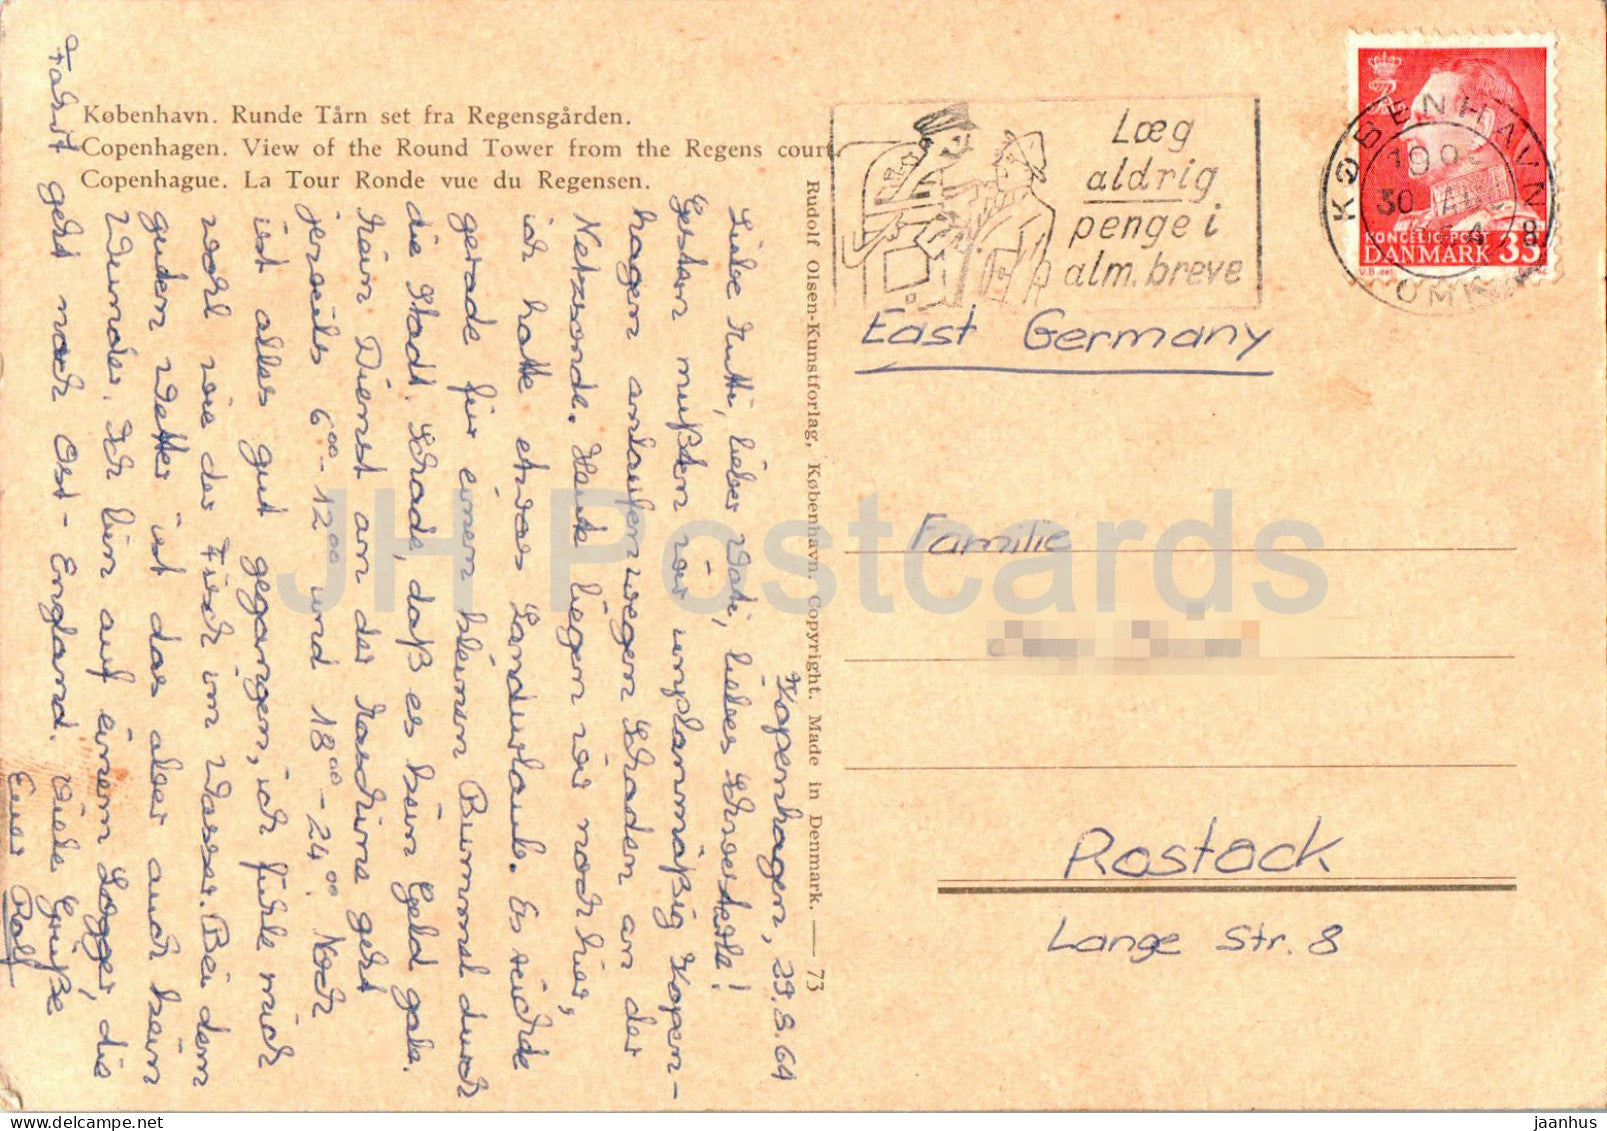 København. Runde Tårn set fra Regensgården.
Copenhagen. View of the Round Tower from the Regens court
Copenhague. La Tour Ronde vue du Regensen.
Kopenhagen, 29.8.64
Liebe Mutti, lieber Vati, liebes Schwesterle!
Gestern mußten wir unplanmäßig Kopen-
hagen anlaufen wegen Schaden an der
Netzsonde. Heute liegen wir noch hier,
ich hatte etwas Landurlaub. Es reichte
gerade für einen kleinen Bummel durch
die Stadt. Schade, daß es kein Geld gab.
Mein Dienst an der Maschine geht
jeweils 6⁰⁰-12⁰⁰ und 18⁰⁰-24⁰⁰. Noch
ist alles gut gegangen, ich fühle mich
wohl wie der Fisch im Wasser. Bei dem
guten Wetter ist das aber auch kein
Wunder. Ich bin auf einem Logger, die
Fahrt geht nach Ost-England. Viele Grüße
Euer Rolf
Rudolf Olsen-Kunstforlag, København. Copyright. Made in Denmark. — 73
Læg
aldrig
penge i
alm. breve
KØBENHAVN
OMK
30
8
KONGELIG POST
DANMARK 35
East Germany
Familie
Rostock
Lange Str. 8
JH Postcards
jaanhus